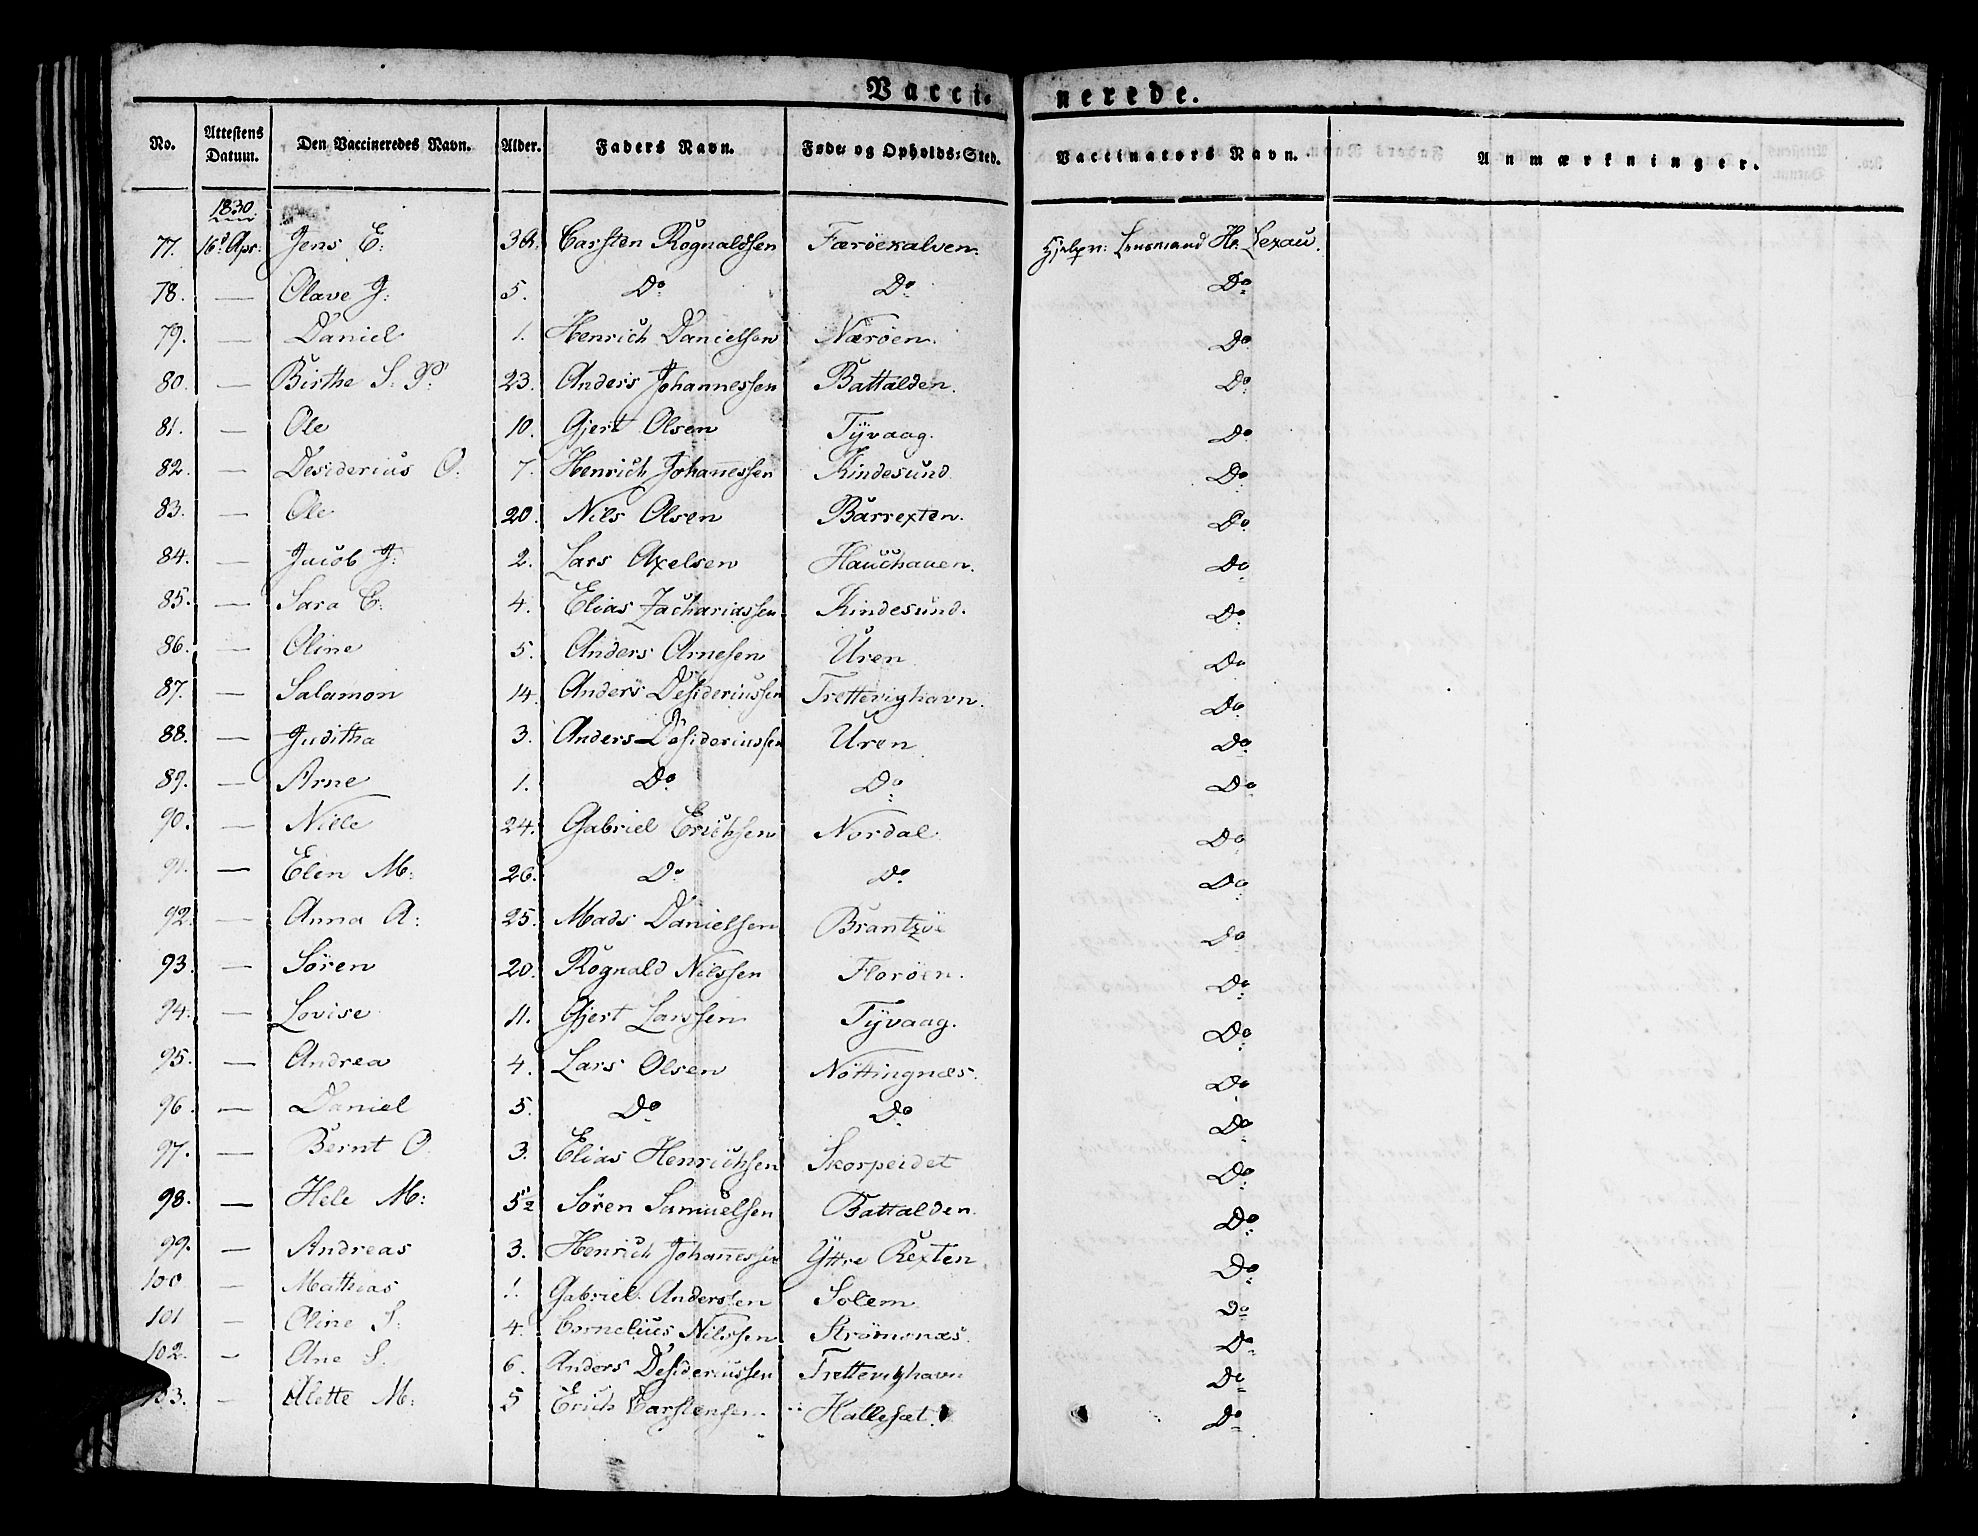 Vaccinerede.
No. Attestens Datum. Den Vaccineredes Navn. Alder. Faders Navn. Føde- og Opholds-Sted. Vaccinators Navn. Anmærkninger.
1830
77. 16d Apr: Jens E: 3 A. Carsten Rognaldssen Færöekalven. Hjelpv: Lensmand Hr. Lexau.
78. — Olave J: 5. Do Do Do
79. — Daniel 1. Henrich Danielsen Næröen. Do
80. — Birthe S. P. 23. Anders Johannessen Battalden. Do
81. — Ole 10. Gjert Olsen Tÿvaag. Do
82. — Desiderius O. 7. Henrich Johanessen Kindesund Do
83. — Ole 20. Nils Olsen Barrexten. Do
84. — Jacob J: 2. Lars Axelsen Hauchauen. Do
85. — Sara C: 4. Elias Zachariassen Kindesund. Do
86. — Oline 5. Anders Arnesen Uren Do
87. — Salamon 14. Anders Desideriussen Tretterighavn. Do
88. — Juditha 3. Anders Desideriussen Uren Do
89. — Arne 1. Do Do Do
90. — Nille 24. Gabriel Erichsen Nordal Do
91. — Elen M: 26. Do Do Do
92. — Anna A: 25. Mads Danielsen Brantzöe Do
93. — Sören 20. Rognald Nilssen Floröen. Do
94. — Lovise 11. Gjert Larssen Tÿvaag. Do
95. — Andrea 4. Lars Olsen Nöttingnæs. Do
96. — Daniel 5. Do Do Do
97. — Bernt O. 3. Elias Henrichsen Skorpeidet Do
98. — Hele M: 5½ Sören Samuelsen Battalden. Do
99. — Andreas 3. Henrich Johanessen Yttre Rexten. Do
100 — Mathias 1. Gabriel Anderssen Solem Do
101 — Oline S: 4. Cornelius Nilssen Strömsnæs. Do
102. — Ane S. 6. Anders Desideriussen Tretterighavn Do
103. — Alette M: 5 Erich Carstensen Hallesæt. Do